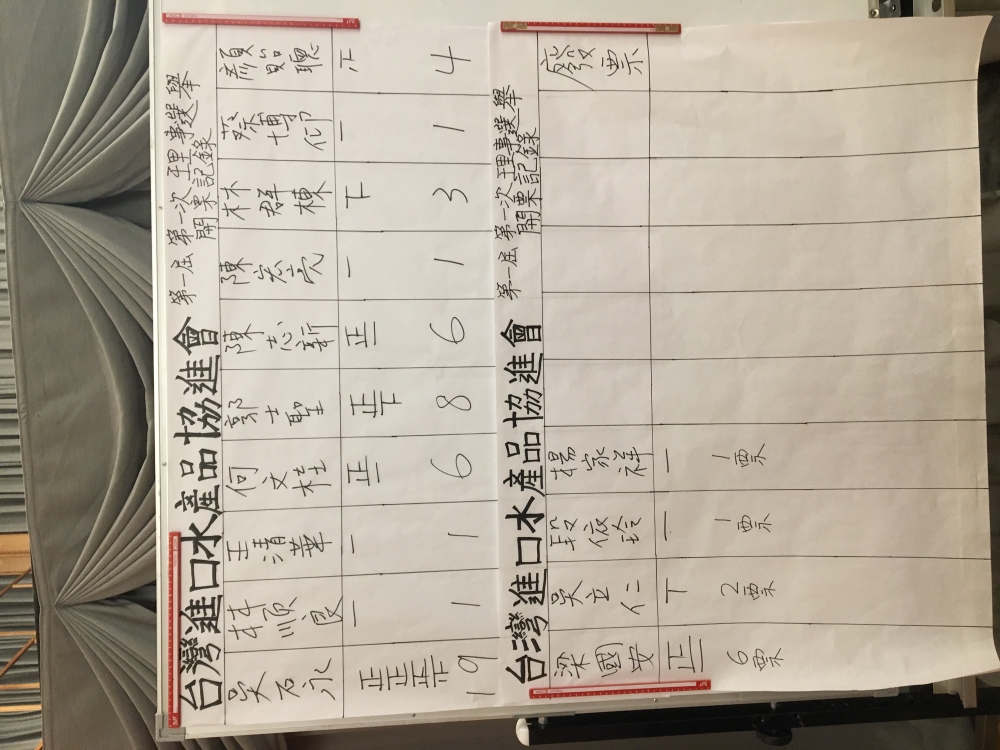 台灣進口水產品協進會 第一屆 第一次 理事選舉
開票記錄
吳石永 正正正正 19
林順良 一 1
王清華 一 1
何文杜 正一 6
郭士聖 正下 8
陳志新 正一 6
陳宏亮 一 1
林群棟 下 3
蔡博仰 一 1
顏貽聰 正 4
台灣進口水產品協進會 第一屆 第一次 理事選舉
開票記錄
梁國安 正一 6票
吳立仁 丅 2票
段依玲 一 1票
楊家祥 一 1票
廢票